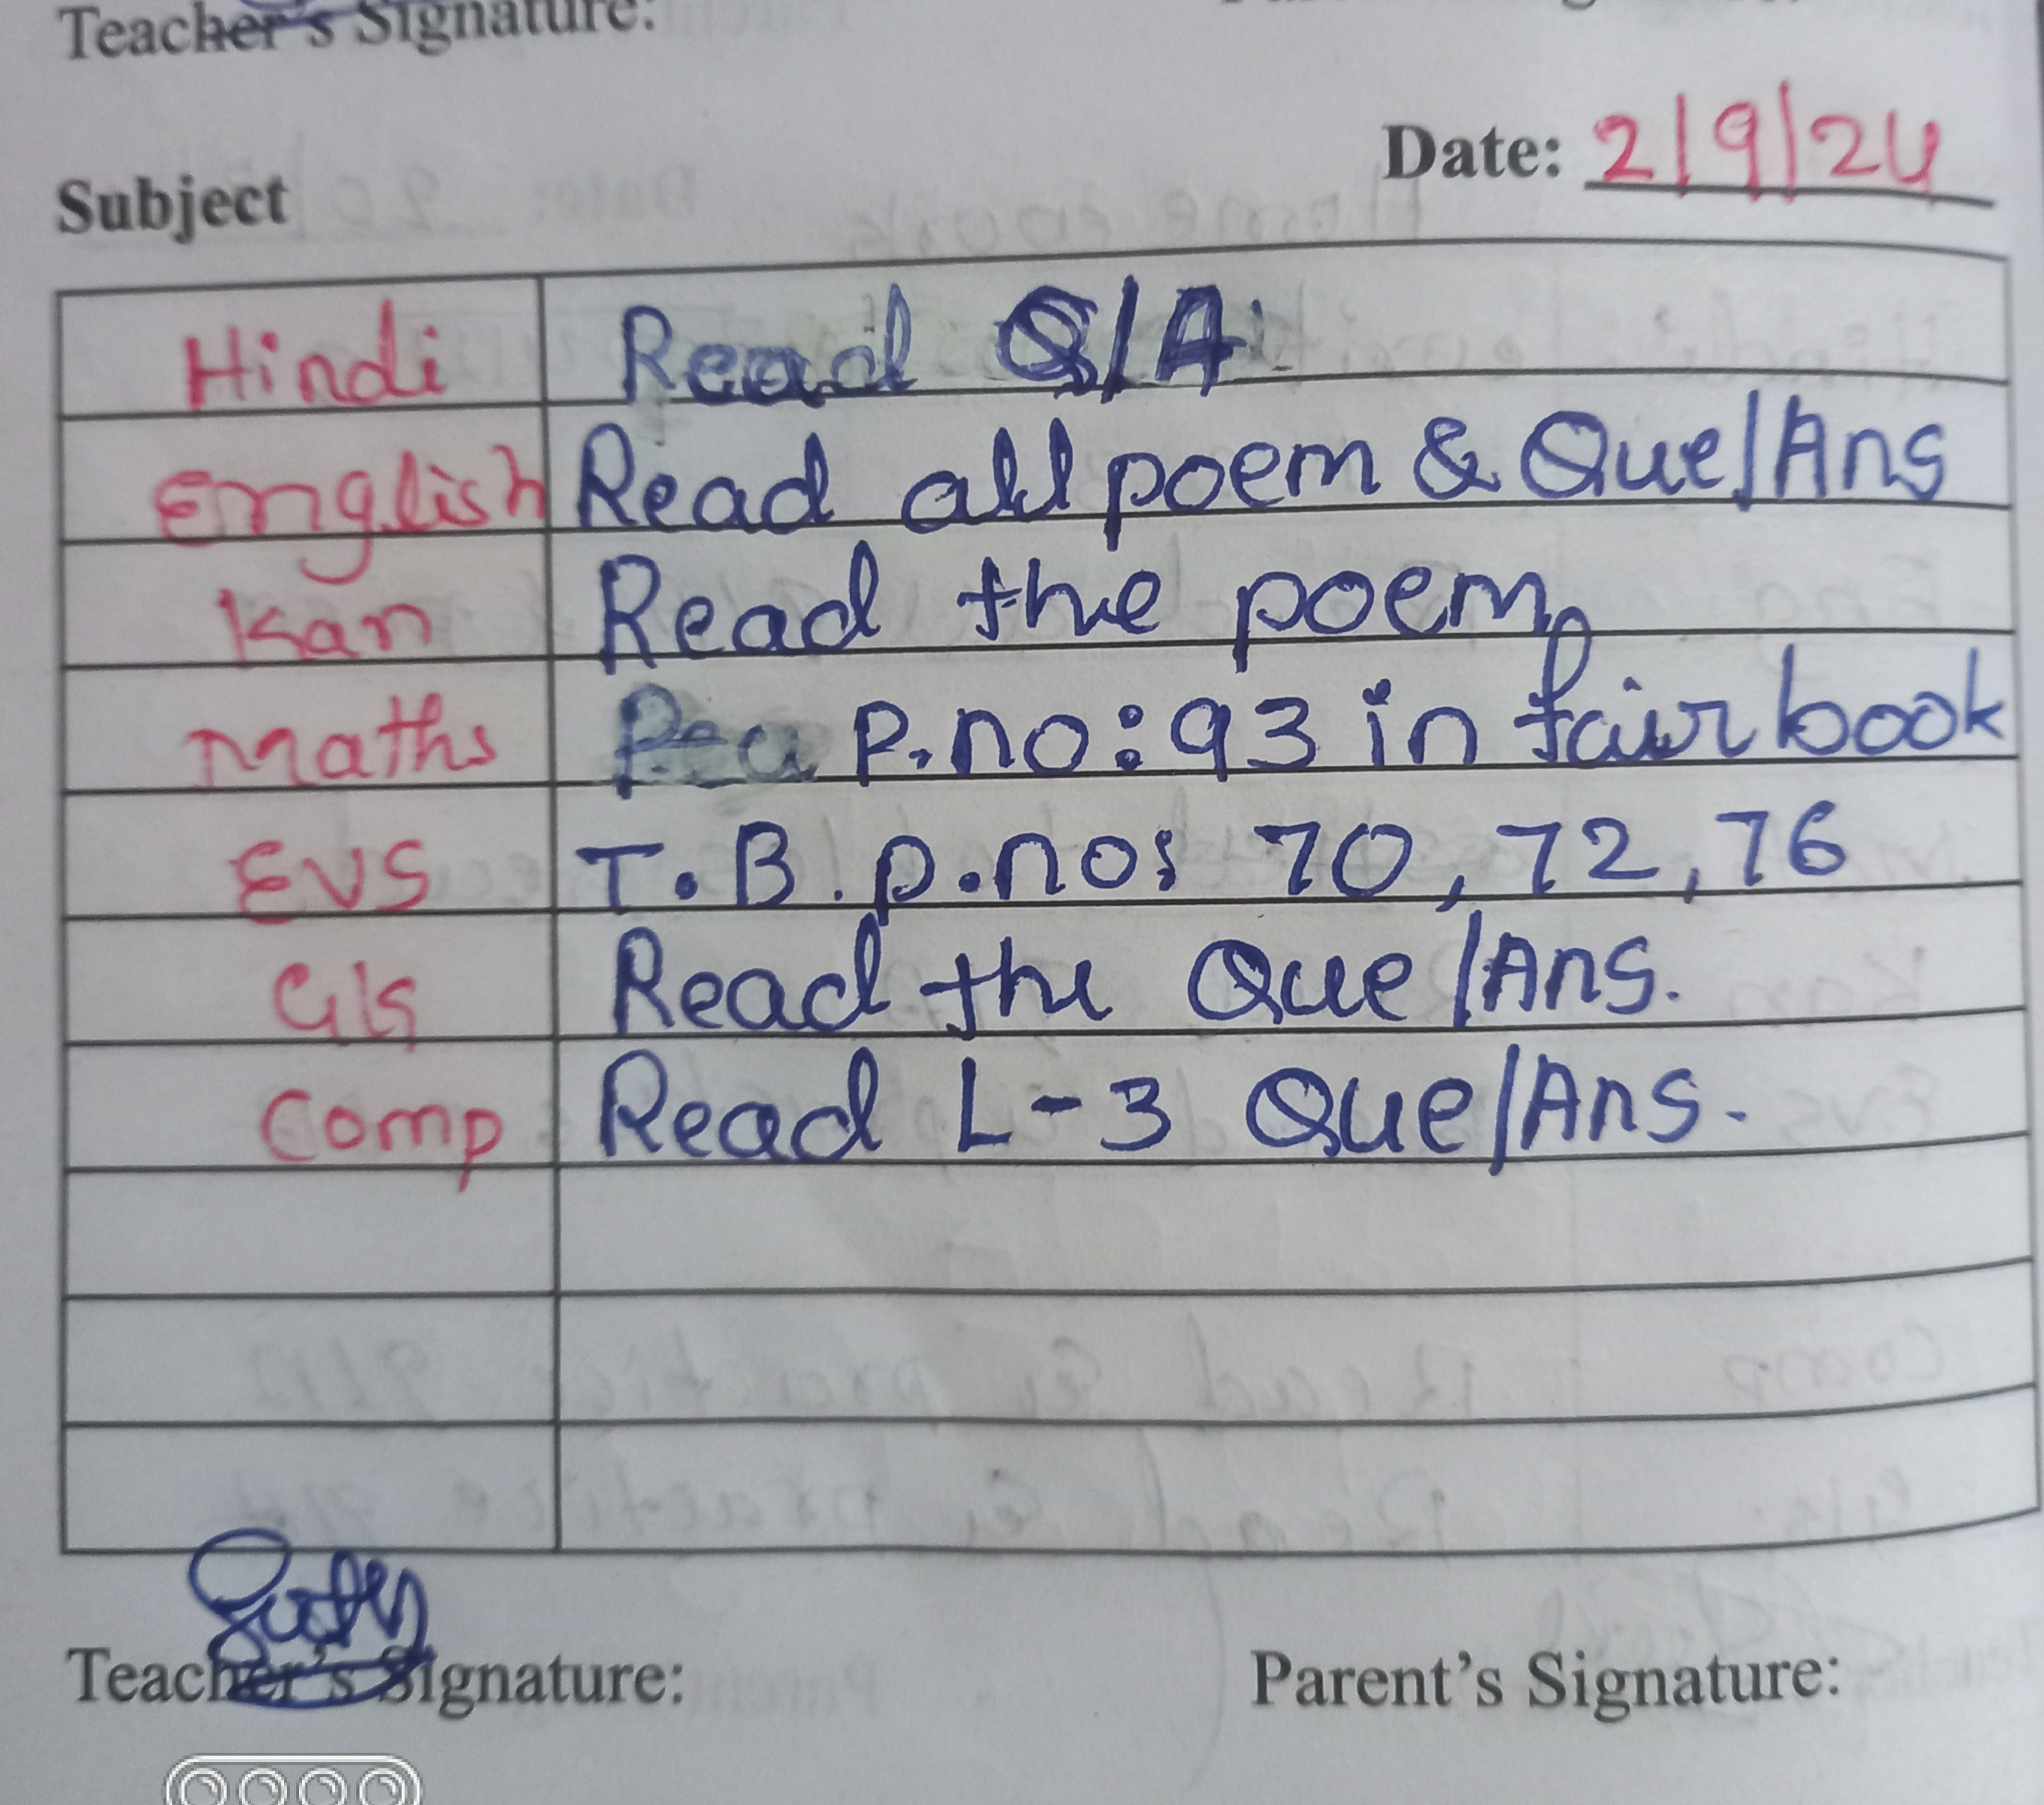 Teacher's Signature:
Date: 2/9/24
Subject
Hindi Read Q/A
English Read all poem & Que/Ans
Kan Read the poem
Maths P.no:93 in fair book
EVS T.B. p.no: 70, 72, 76
G/s Read the Que/Ans.
Comp Read L-3 Que/Ans.
Teacher's Signature:
Parent's Signature: